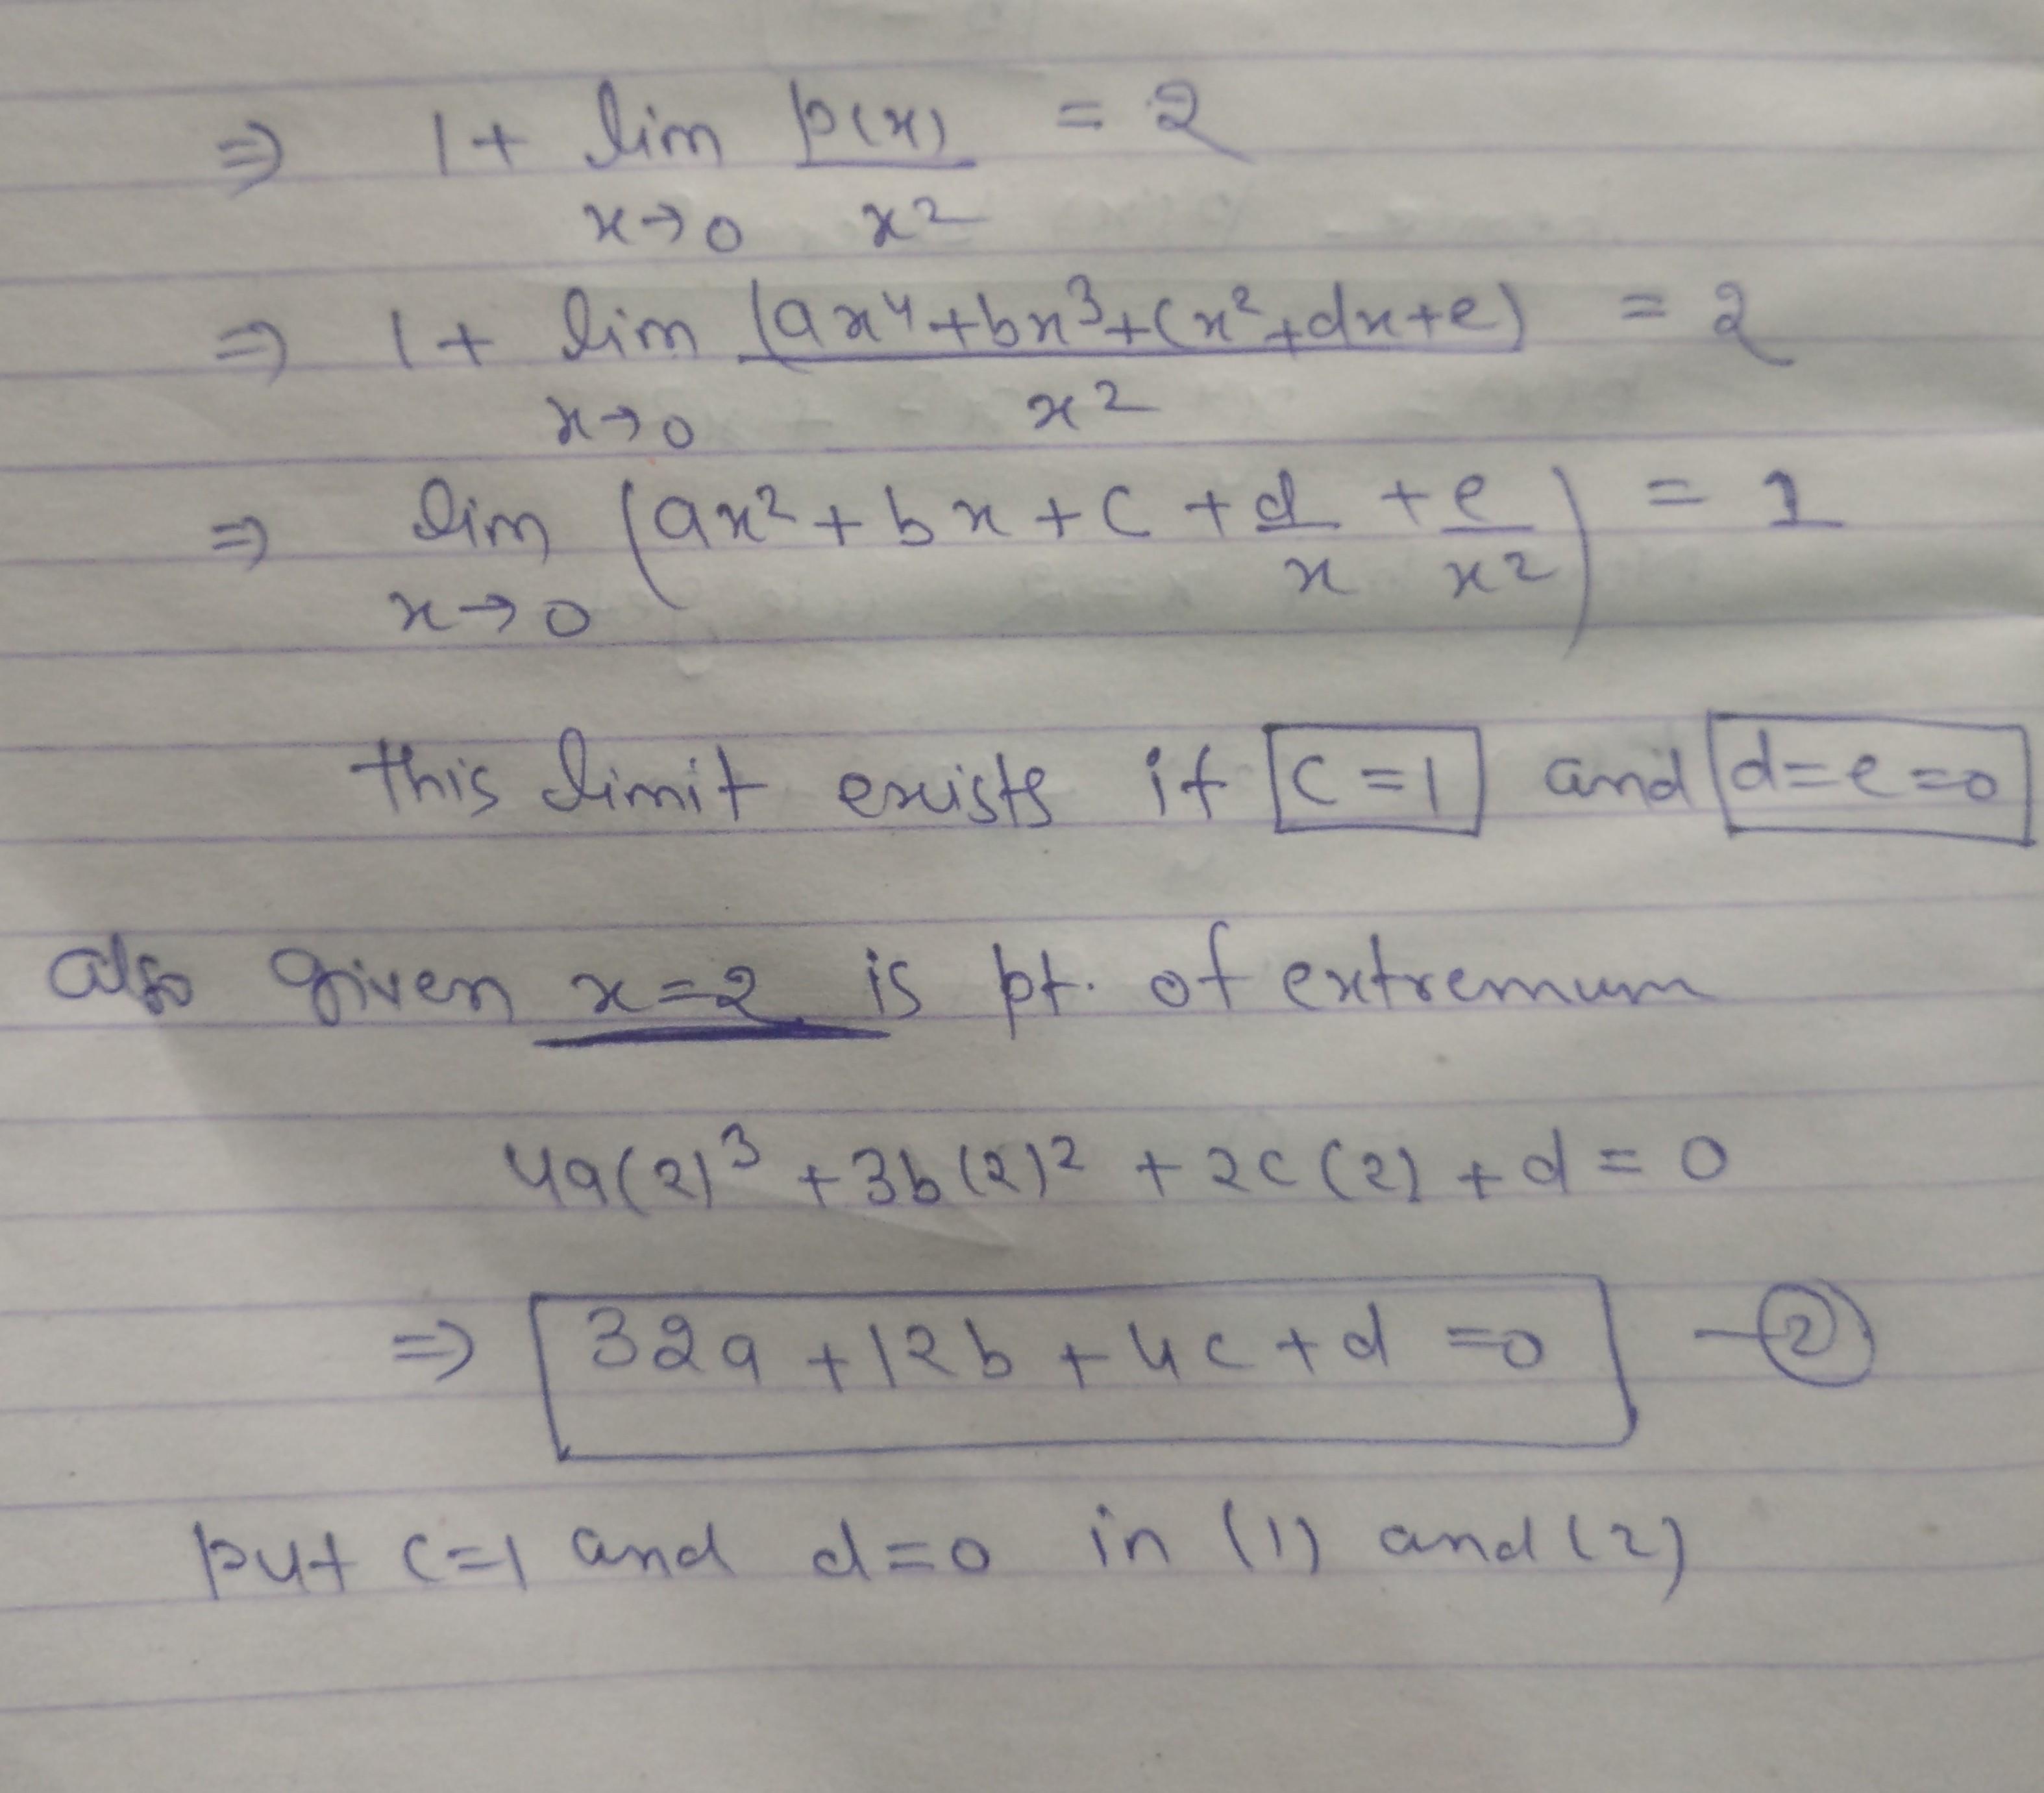 ⇒ 1 + lim p(x) = 2
x→0 x2
⇒ 1 + lim (ax⁴+bx³+cx²+dx+e) = 2
x→0 x2
⇒ lim (ax² + bx + c + d/x + e/x2) = 1
x→0
this limit exists if c=1 and d=e=0
also given x=2 is pt. of extremum
4a(2)³ + 3b(2)² + 2c(2) + d = 0
⇒ 32a + 12b + 4c + d = 0 — ②
put c=1 and d=0 in (1) and (2)